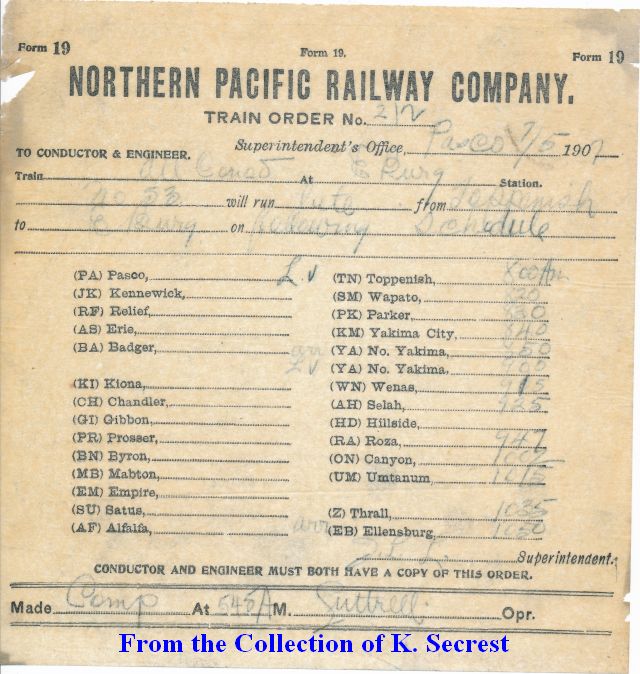 Form 19 Form 19. Form 19
NORTHERN PACIFIC RAILWAY COMPANY.
TRAIN ORDER No. 212
Superintendent's Office, Pasco 7/5 1907
TO CONDUCTOR & ENGINEER.
Train At E Burg Station.
No 53 will run late from Toppenish
to E Burg on following Schedule
(PA) Pasco, L. v (TN) Toppenish, 800 Am
(JK) Kennewick, (SM) Wapato, 820
(RF) Relief, (PK) Parker, 830
(AS) Erie, (KM) Yakima City, 840
(BA) Badger, arr (YA) No. Yakima, 850
Lv (YA) No. Yakima, 900
(KI) Kiona, (WN) Wenas, 915
(CH) Chandler, (AH) Selah, 925
(GI) Gibbon, (HD) Hillside,
(PR) Prosser, (RA) Roza, 947
(BN) Byron, (ON) Canyon,
(MB) Mabton, (UM) Umtanum, 1015
(EM) Empire,
(SU) Satus, (Z) Thrall, 1035
(AF) Alfalfa, arr (EB) Ellensburg, 1050
Superintendent.
CONDUCTOR AND ENGINEER MUST BOTH HAVE A COPY OF THIS ORDER.
Made Comp At 545 A M. Luttrell Opr.
From the Collection of K. Secrest